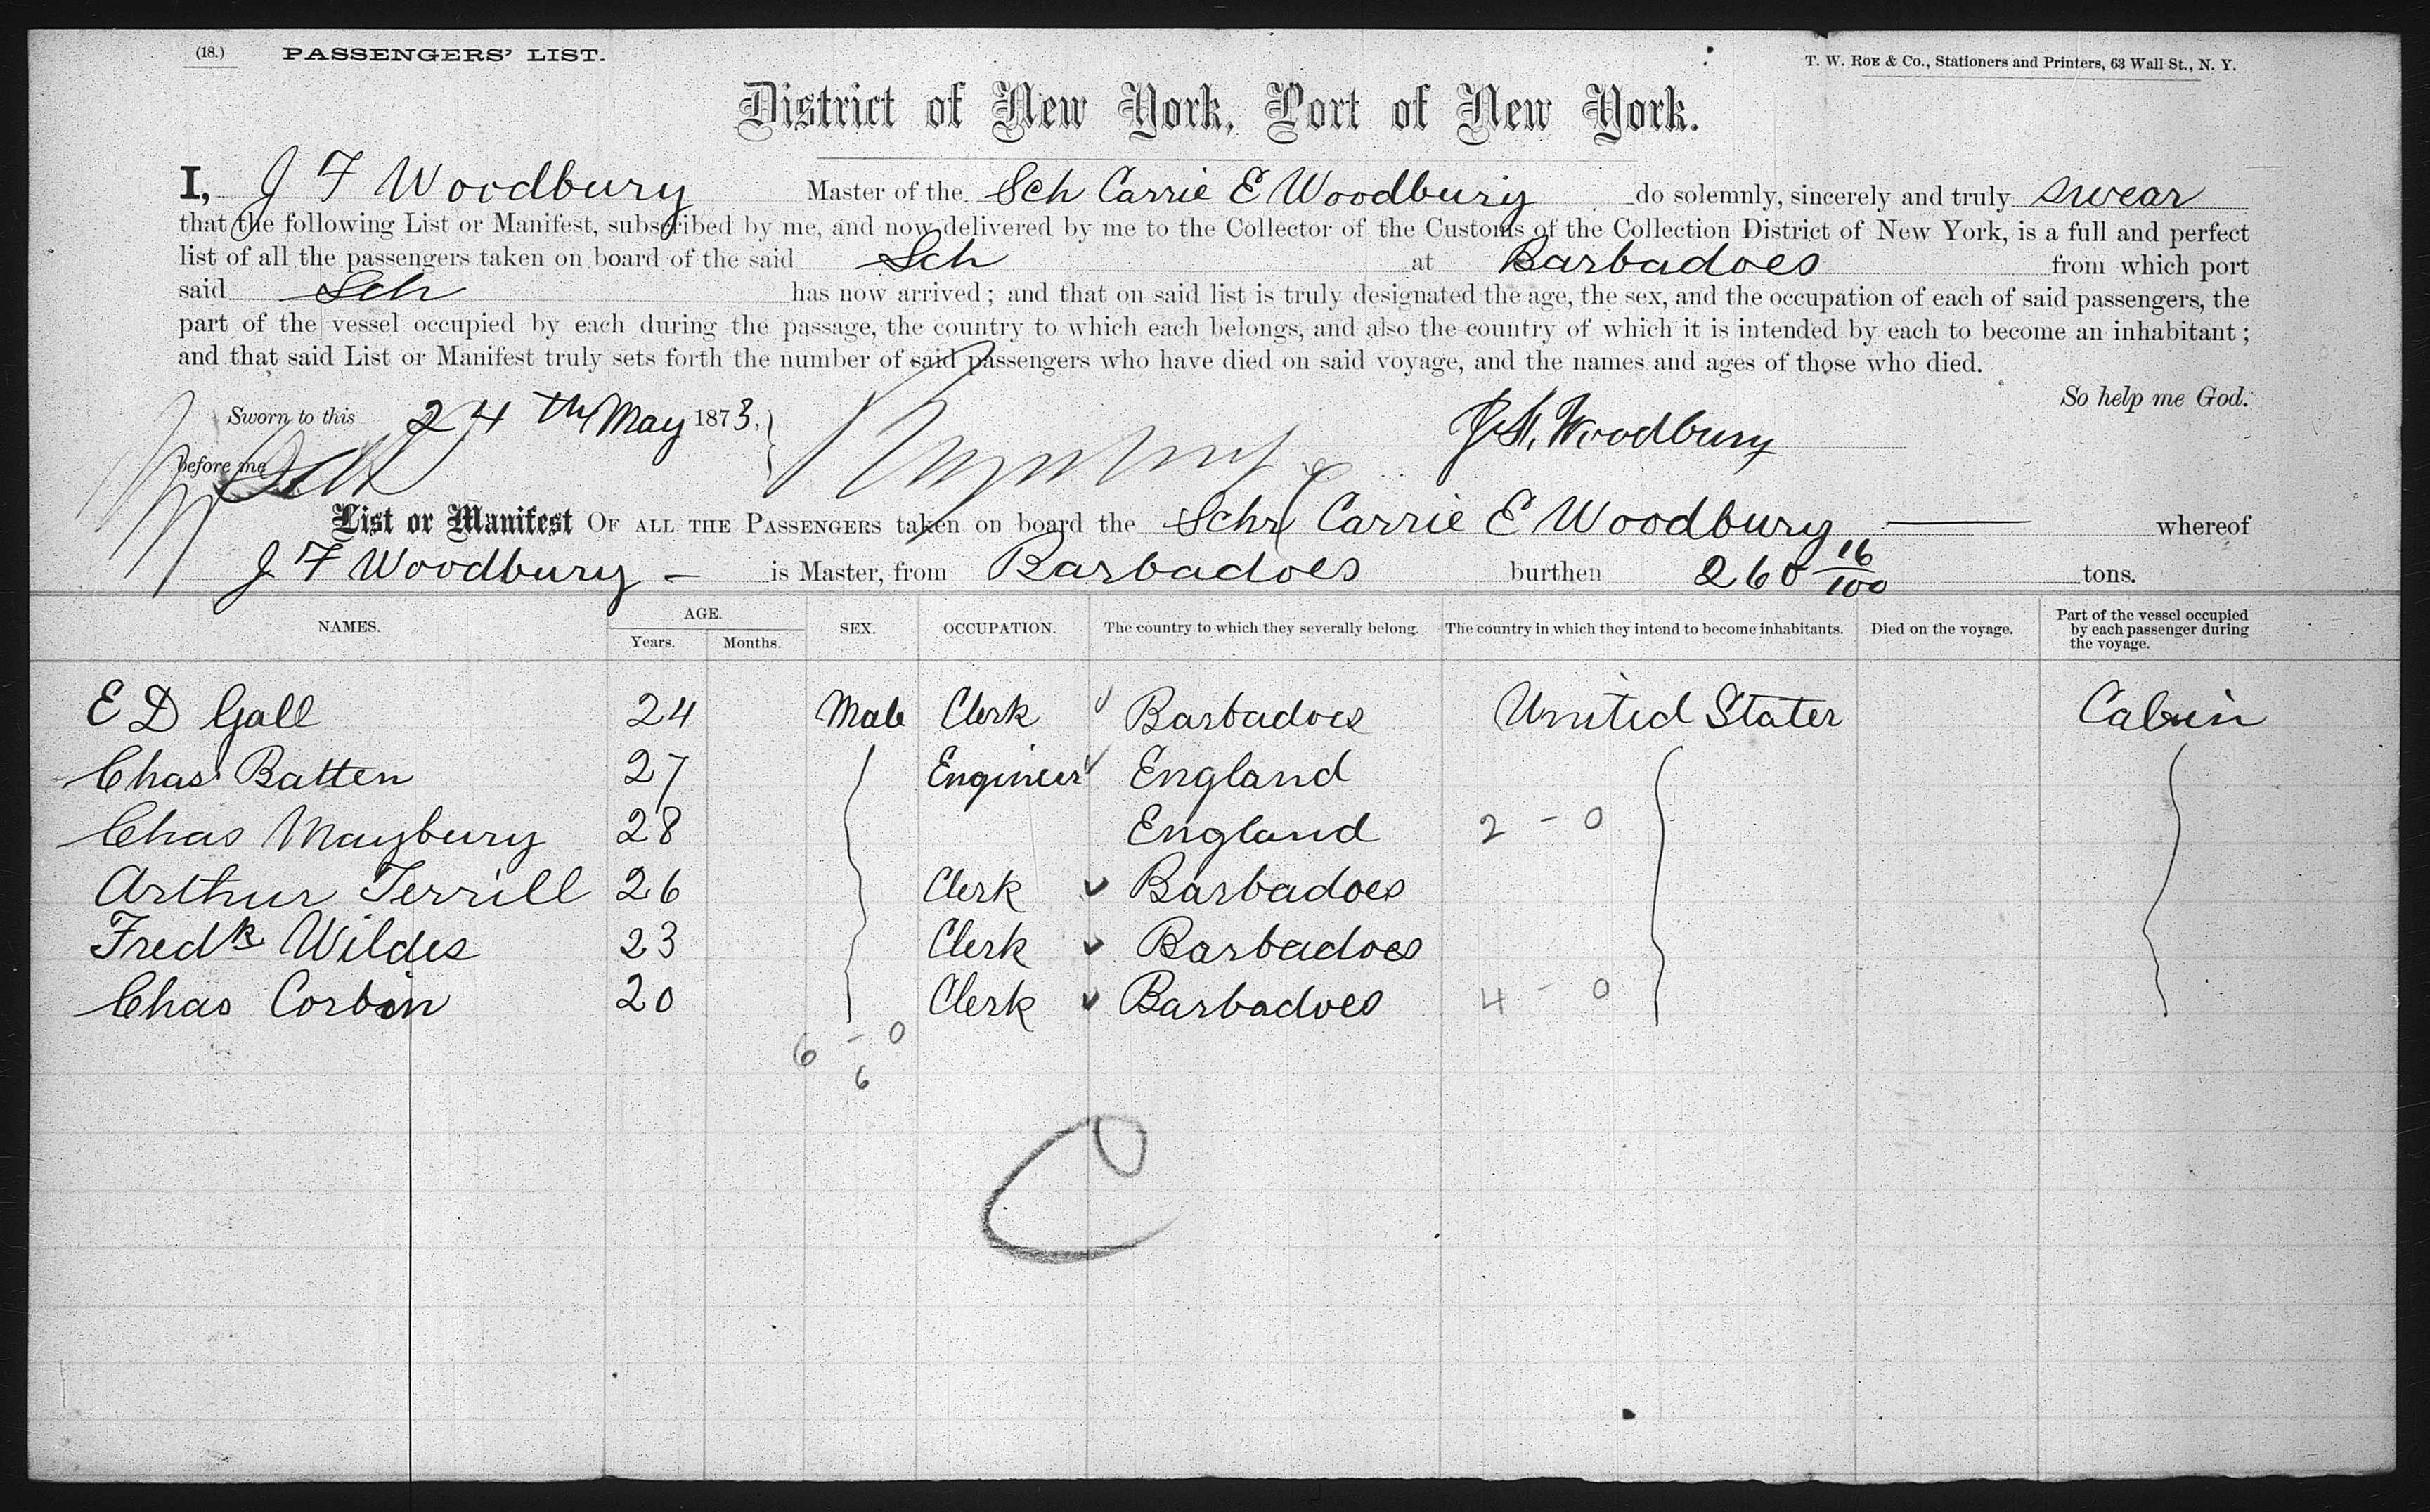 (18.) PASSENGERS' LIST. T. W. ROE & Co., Stationers and Printers, 63 Wall St., N. Y.
District of New York, Port of New York.
I, J F Woodbury Master of the Sch Carrie E Woodbury do solemnly, sincerely and truly swear
that the following List or Manifest, subscribed by me, and now delivered by me to the Collector of the Customs of the Collection District of New York, is a full and perfect
list of all the passengers taken on board of the said Sch at Barbadoes from which port
said Sch has now arrived; and that on said list is truly designated the age, the sex, and the occupation of each of said passengers, the
part of the vessel occupied by each during the passage, the country to which each belongs, and also the country of which it is intended by each to become an inhabitant;
and that said List or Manifest truly sets forth the number of said passengers who have died on said voyage, and the names and ages of those who died.
So help me God.
Sworn to this 24th May 1873, J. F. Woodbury
before me
List or Manifest OF ALL THE PASSENGERS taken on board the Schr Carrie E Woodbury whereof
J F Woodbury - is Master, from Barbadoes burthen 260 16/100 tons.
NAMES. AGE. Years. Months. SEX. OCCUPATION. The country to which they severally belong. The country in which they intend to become inhabitants. Died on the voyage. Part of the vessel occupied by each passenger during the voyage.
E D Gall 24 Male Clerk Barbadoes United States Cabin
Chas Batten 27 Engineer England
Chas Maybury 28 England 2 - 0
Arthur Terrill 26 Clerk Barbadoes
Fredk Wildes 23 Clerk Barbadoes
Chas Corbin 20 Clerk Barbadoes 4 - 0
6 - 0
6
C